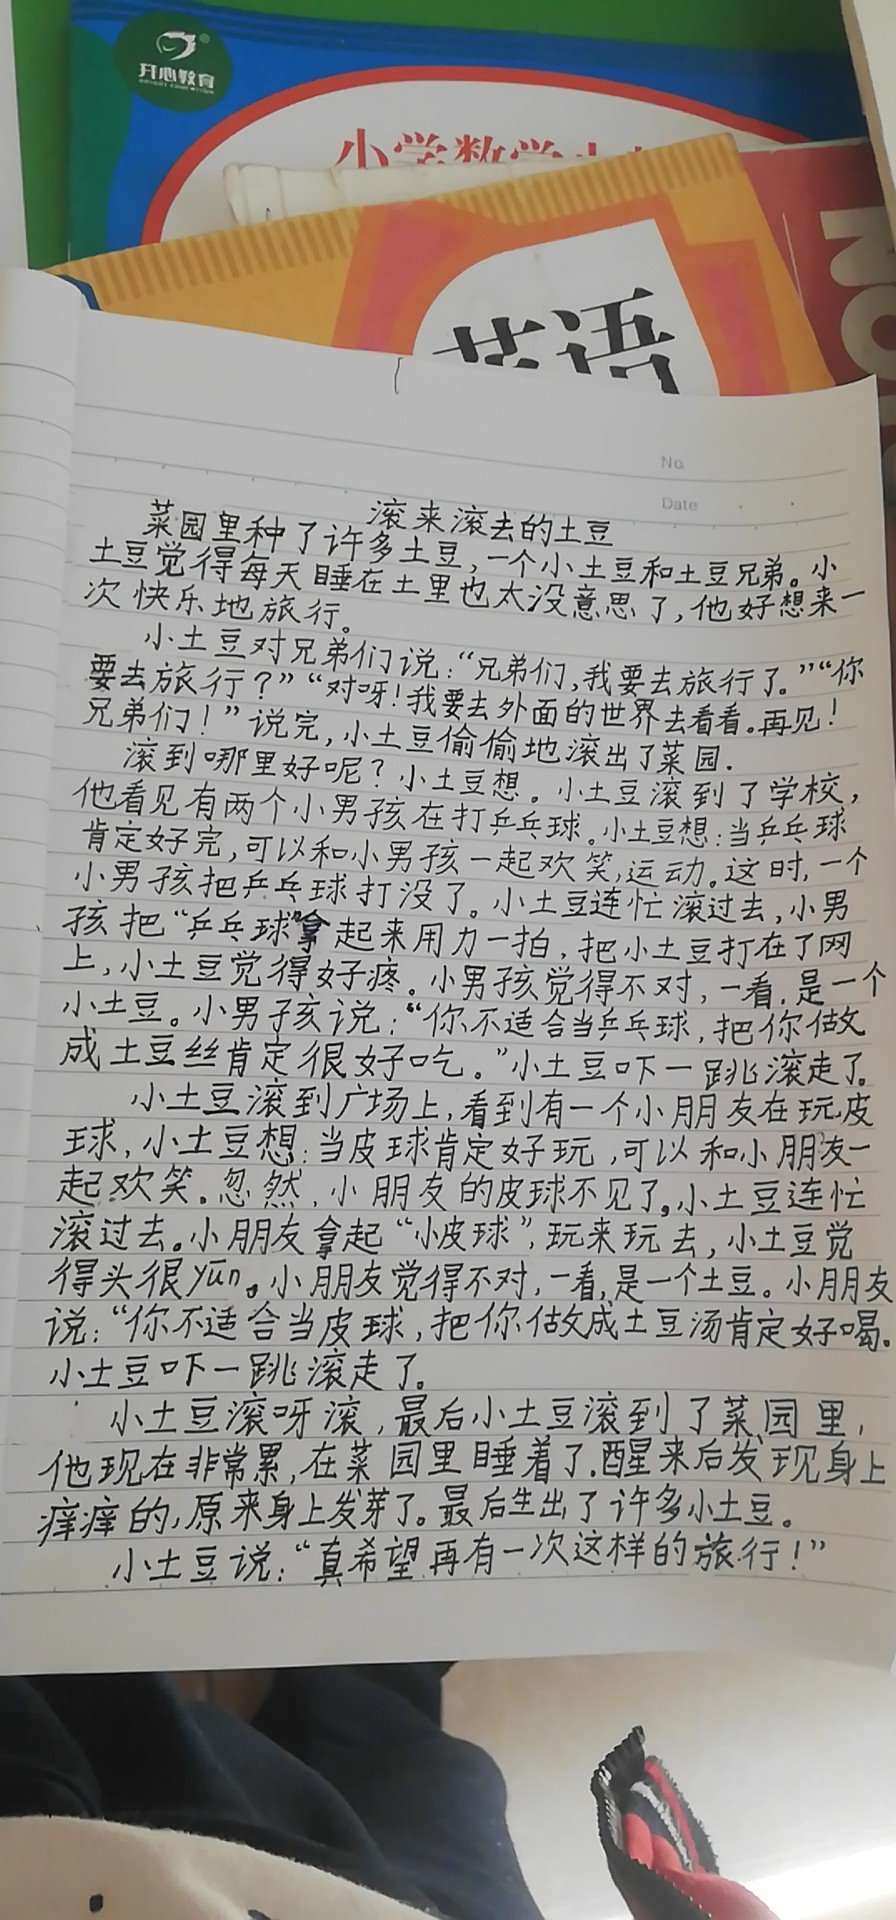 开心教育
小学数学
英语
No.
Date
滚来滚去的土豆
菜园里种了许多土豆，一个小土豆和土豆兄弟。小
土豆觉得每天睡在土里也太没意思了，他好想来一
次快乐地旅行。
小土豆对兄弟们说：“兄弟们，我要去旅行了。”“你
要去旅行？”“对呀！我要去外面的世界去看看。再见！
兄弟们！”说完，小土豆偷偷地滚出了菜园.
滚到哪里好呢？小土豆想。小土豆滚到了学校，
他看见有两个小男孩在打乒乓球。小土豆想：当乒乓球
肯定好完，可以和小男孩一起欢笑，运动。这时，一个
小男孩把乒乓球打没了。小土豆连忙滚过去，小男
孩把“乒乓球”拿起来用力一拍，把小土豆打在了网
上，小土豆觉得好疼。小男孩觉得不对，一看，是一个
小土豆。小男孩说：“你不适合当乒乓球，把你做
成土豆丝肯定很好吃。”小土豆吓一跳滚走了。
小土豆滚到广场上，看到有一个小朋友在玩皮
球，小土豆想：当皮球肯定好玩，可以和小朋友一
起欢笑。忽然，小朋友的皮球不见了。小土豆连忙
滚过去。小朋友拿起“小皮球”，玩来玩去，小土豆觉
得头很yūn。小朋友觉得不对，一看，是一个土豆。小朋友
说：“你不适合当皮球，把你做成土豆汤肯定好喝。
小土豆吓一跳滚走了。
小土豆滚呀滚，最后小土豆滚到了菜园里，
他现在非常累，在菜园里睡着了.醒来后发现身上
痒痒的，原来身上发芽了。最后生出了许多小土豆。
小土豆说：“真希望再有一次这样的旅行！”